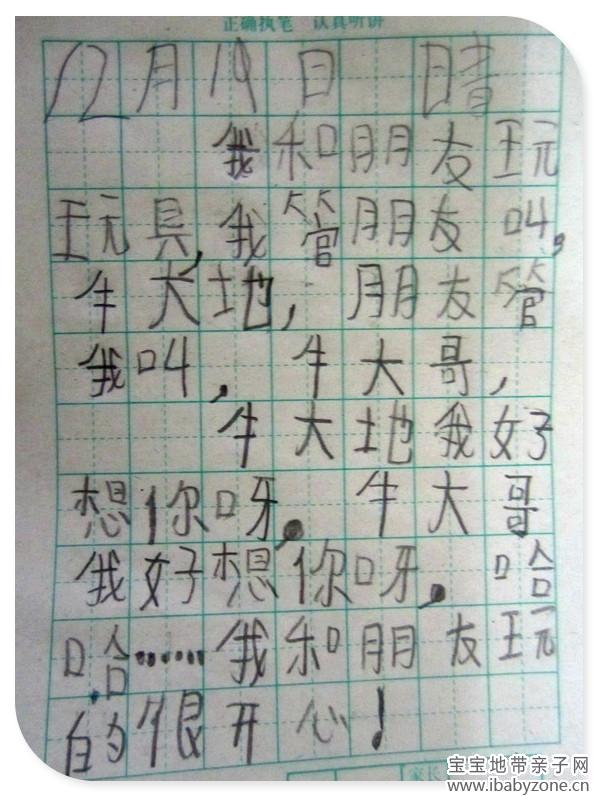 正确执笔 认真听讲
12月19日 晴
我和朋友玩
玩具,我管朋友叫,
牛大地,朋友管
我叫,牛大哥,
牛大地我好
想你呀,牛大哥
我好想你呀,哈
哈……我和朋友玩
的很开心!
家长
宝宝地带亲子网
www.ibabyzone.cn